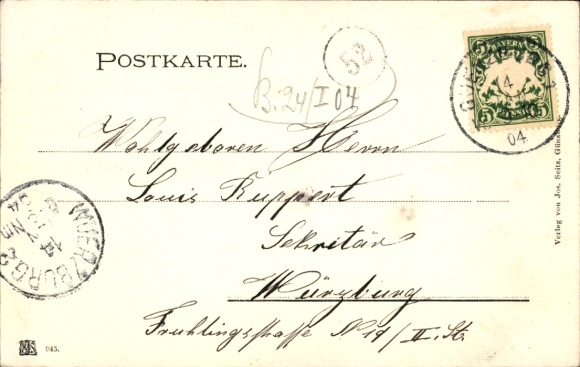 POSTKARTE.
52
B. 24/I 04
5 BAYERN 5
5 5
04
Wohlgeboren Herrn
Louis Ruppert
Sekretär
Würzburg
Frühlingsstraße No 19/II. St.
WUERZBURG 2
Verlag von Jos. Seitz, Günzburg
945.